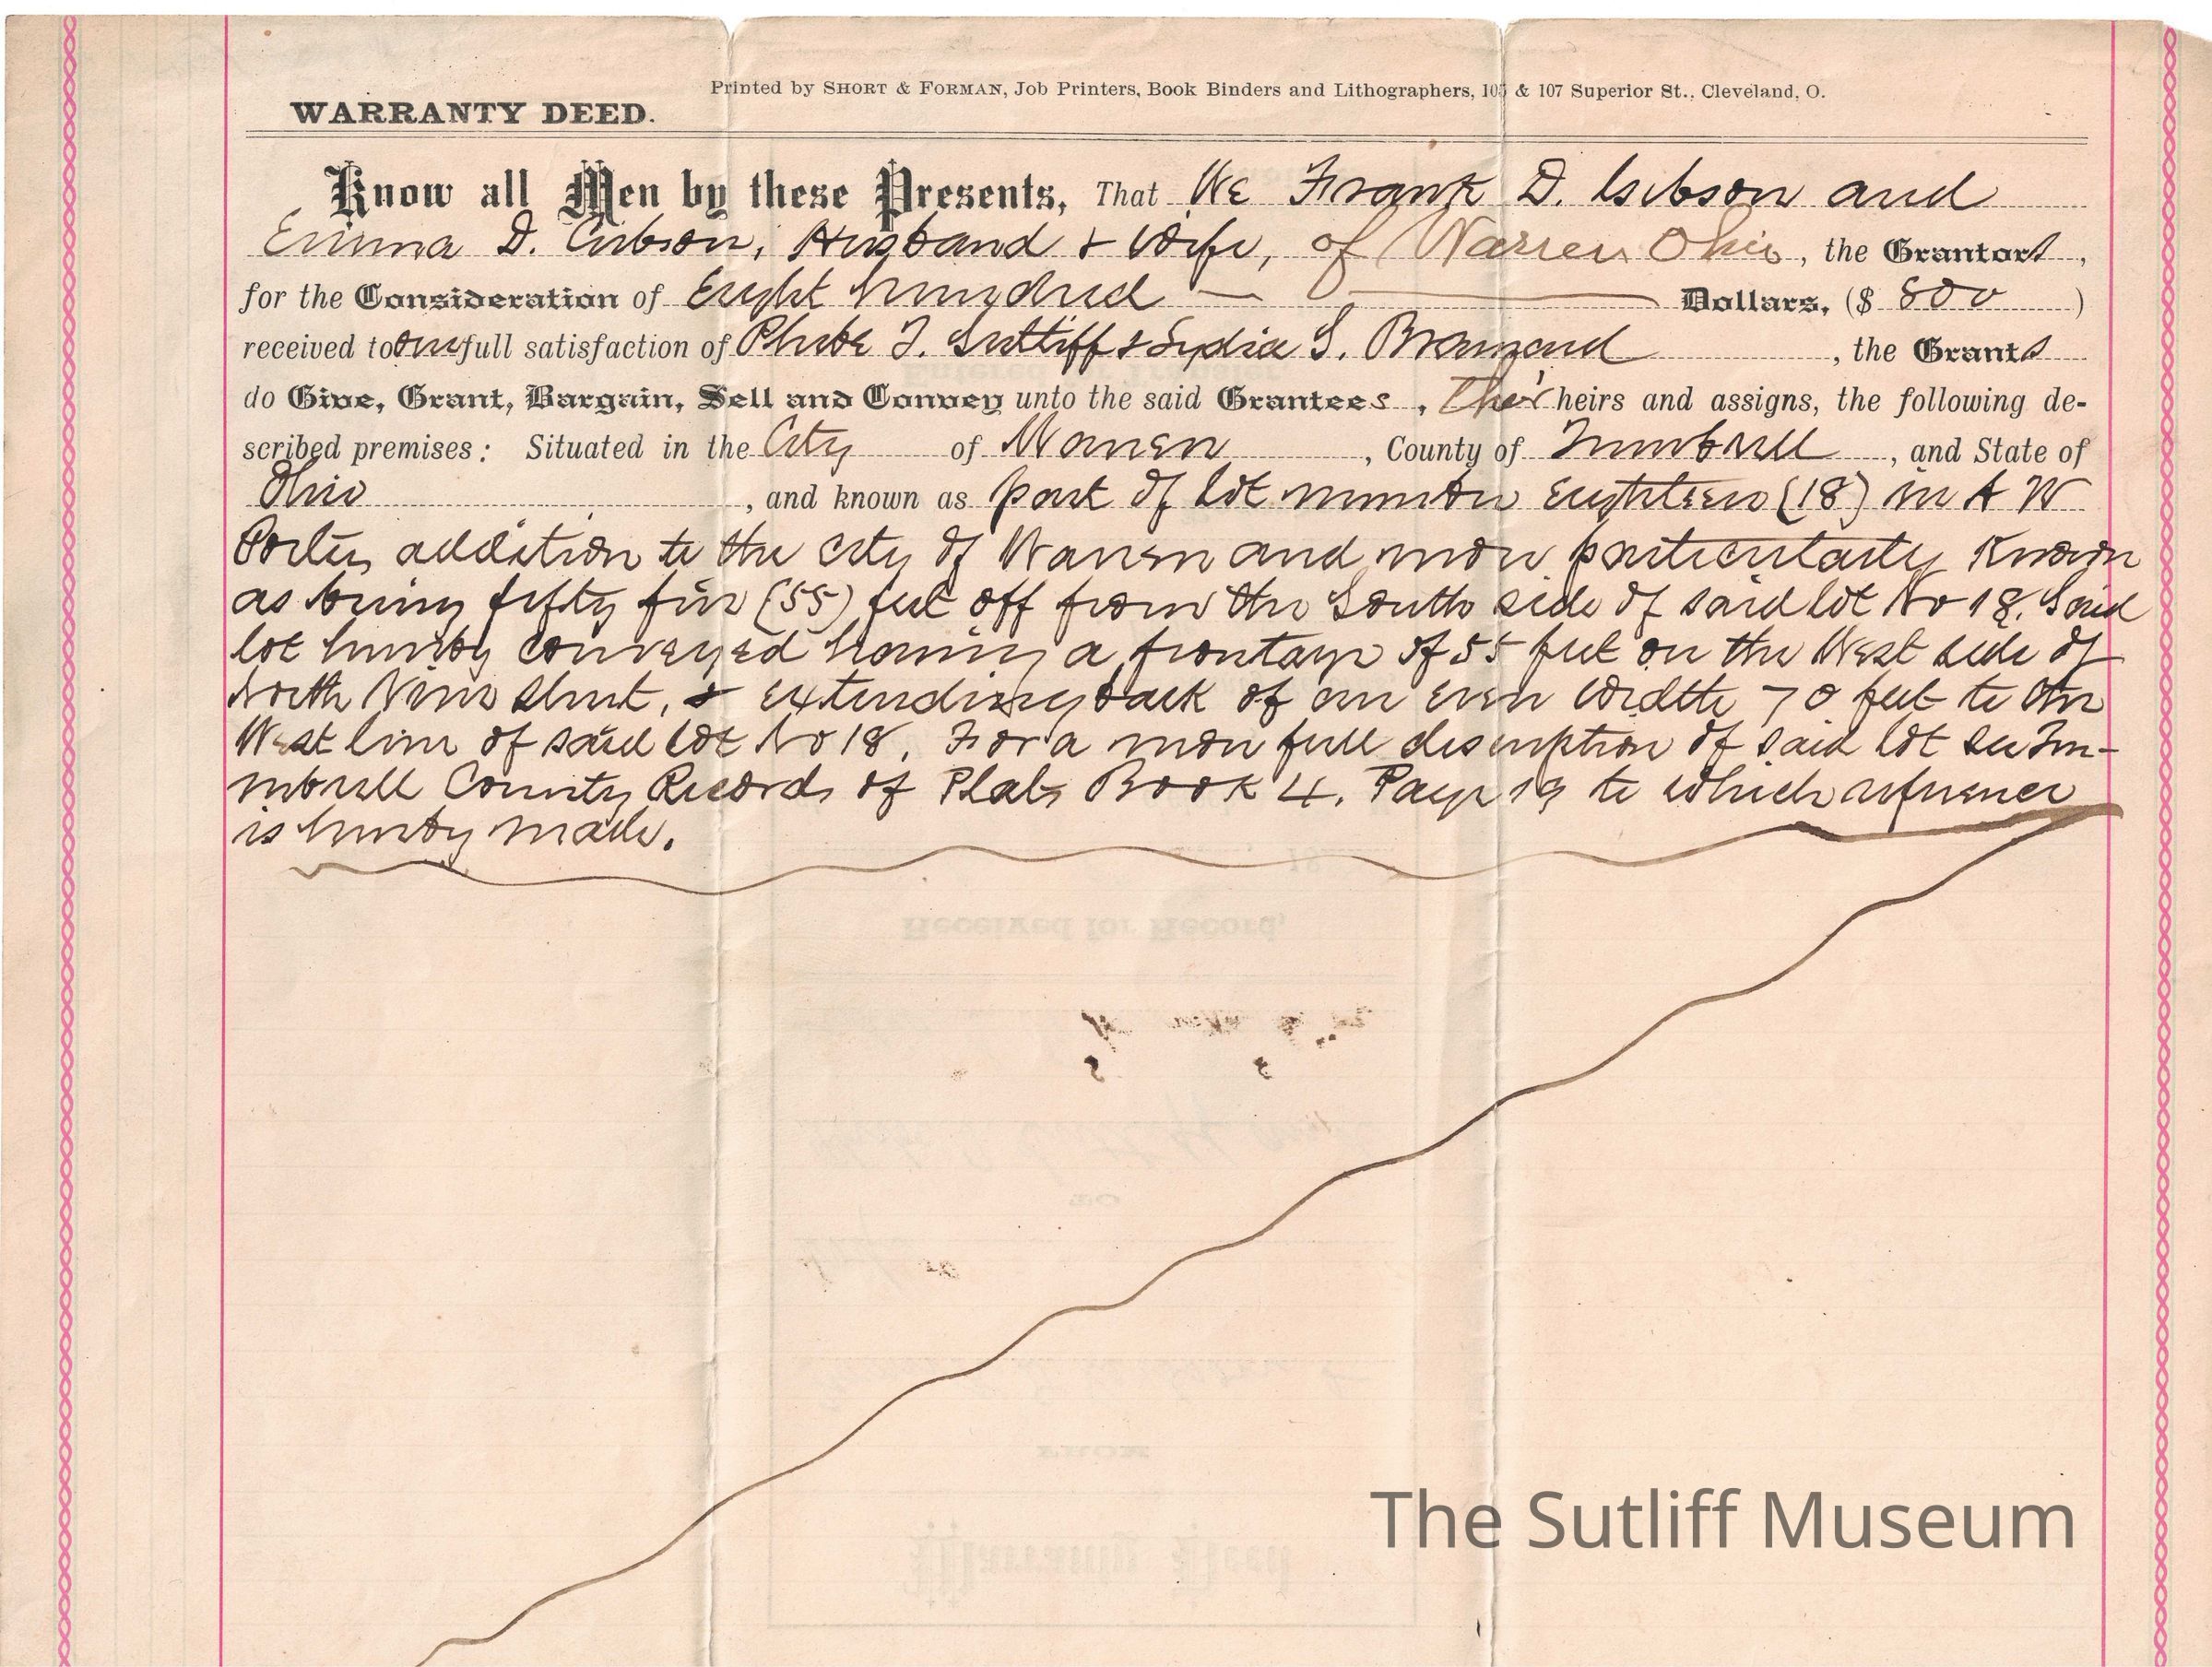 Printed by SHORT & FORMAN, Job Printers, Book Binders and Lithographers, 105 & 107 Superior St., Cleveland, O.
WARRANTY DEED.
Know all Men by these Presents, That We Frank D. Gibson and
Emma D. Gibson, Husband & Wife, of Warren Ohio, the Grantors,
for the Consideration of Eight hundred — Dollars, ($ 800 )
received to our full satisfaction of Phebe T. Sutliff & Lydia S. , the Grants
do Give, Grant, Bargain, Sell and Convey unto the said Grantees, their heirs and assigns, the following de-
scribed premises: Situated in the City of Warren, County of Trumbull, and State of
Ohio, and known as part of lot number Eighteen (18) in A W
Porters addition to the city of Warren and more particularly Known
as being fifty five (55) feet off from the South side of said lot No 18. Said
lot hereby conveyed having a frontage of 55 feet on the West side of
North Vine Street, & extending back of an even width 70 feet to the
West line of said lot No 18. For a more full description of said lot see Tru-
mbull County Records of Plats Book 4. Page 19 to which reference
is hereby made.
Received for Record,
TO
FROM
Warranty Deed
The Sutliff Museum